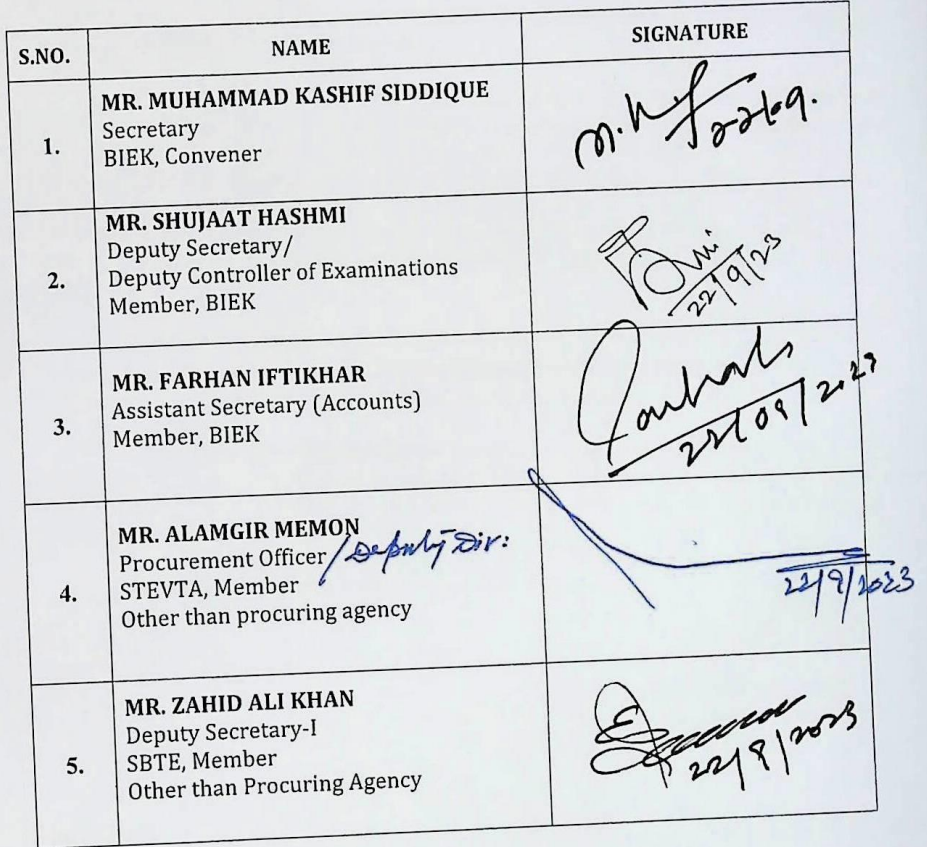 S.NO. NAME SIGNATURE
1.
MR. MUHAMMAD KASHIF SIDDIQUE
Secretary
BIEK, Convener
22/9.
2.
MR. SHUJAAT HASHMI
Deputy Secretary/
Deputy Controller of Examinations
Member, BIEK
22/9/23
3.
MR. FARHAN IFTIKHAR
Assistant Secretary (Accounts)
Member, BIEK
22/09/2023
4.
MR. ALAMGIR MEMON
Procurement Officer / Deputy Dir:
STEVTA, Member
Other than procuring agency
22/9/2023
5.
MR. ZAHID ALI KHAN
Deputy Secretary-I
SBTE, Member
Other than Procuring Agency